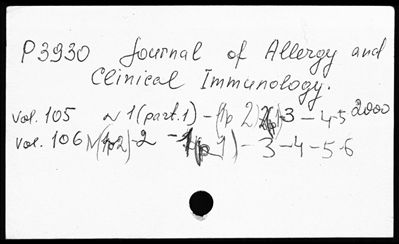 P3930 Journal of Allergy and
Clinical Immunology.
vol. 105 N 1 (part.1) - (1p 2) 2(p1) -3 - 4-5 2000
vol. 106 N (1p2) -2 - 1(p2) - 3-4-5-6